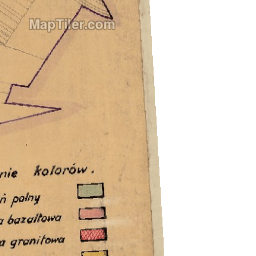 MapTiler.com
nie kolorów.
ń polny
a bazaltowa
a granitowa